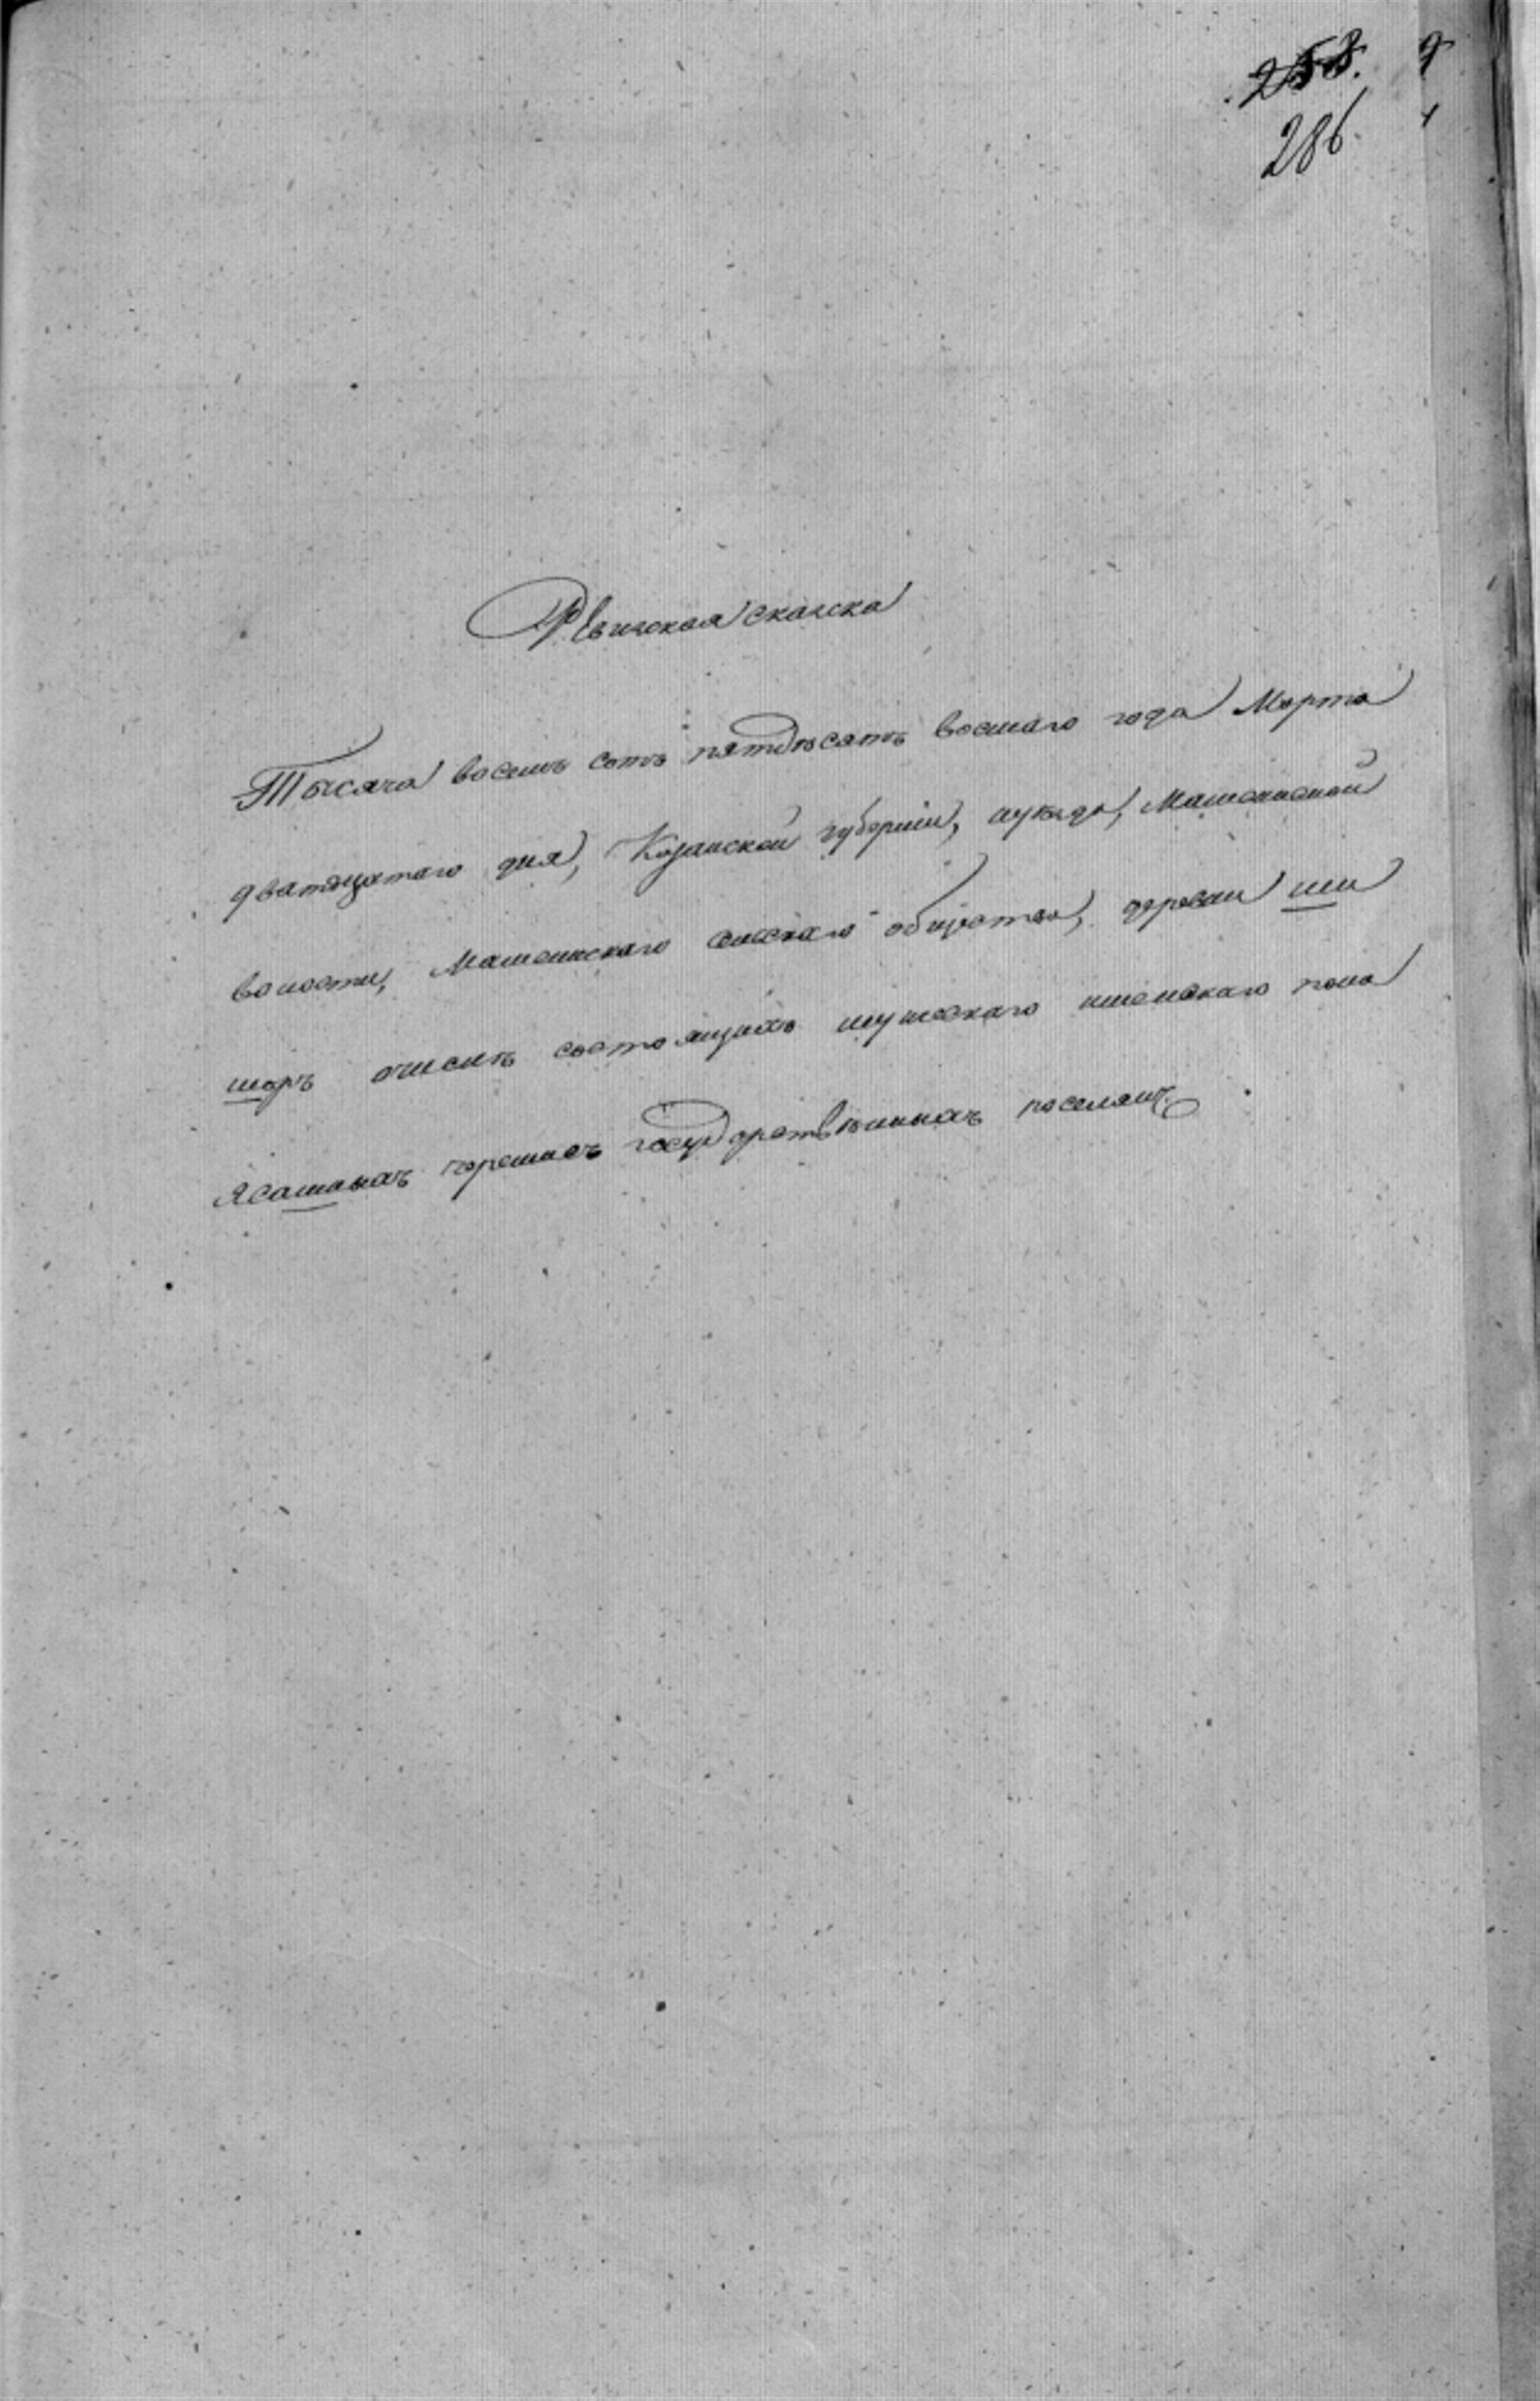 258.
286
Ревижская сказска
Тысяча восемь сотъ пятдѣсятъ восмаго года Марта
дватдцатаго дня, Казанской губерніи, и уѣзда, Машлянской
волости, сельскаго общества, деревни ши
шоръ очислѣ состоящихъ мужескаго женскаго пола
ясашныхъ черемисъ государствѣнныхъ поселянъ